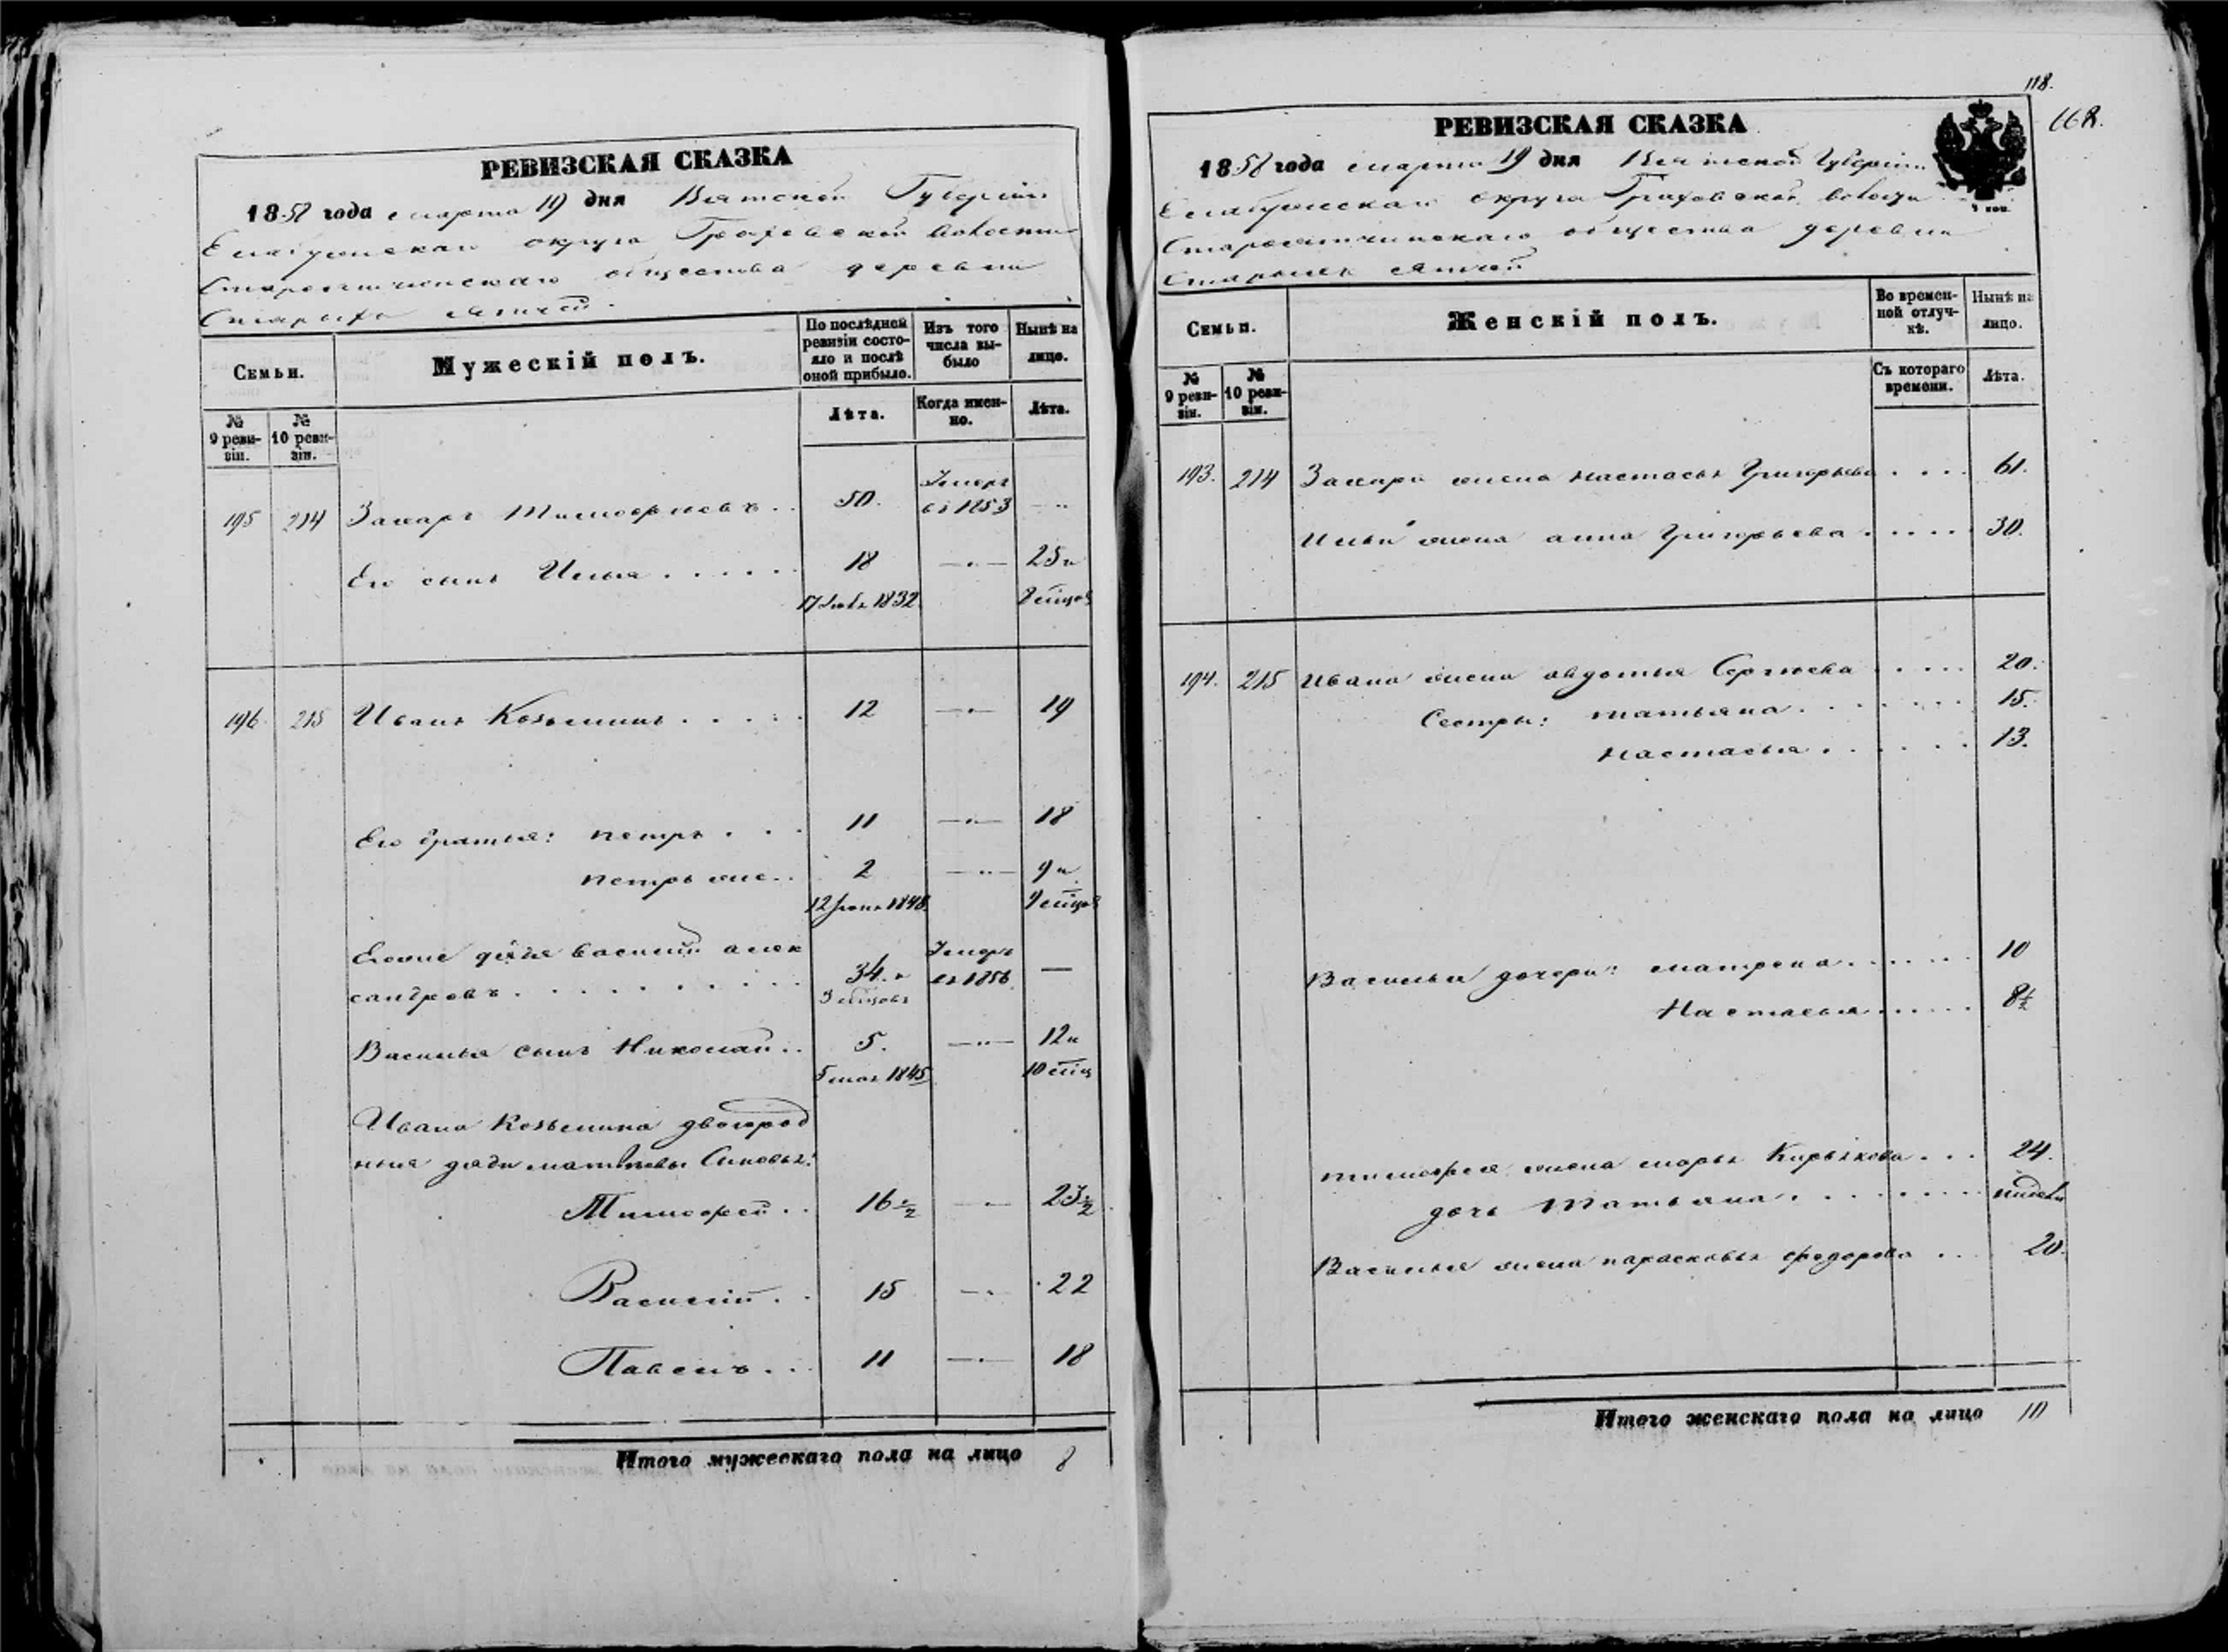 РЕВИЗСКАЯ СКАЗКА
1858 года марта 19 дня Вятской Губернии
Елабужскаго округа Граховской волости
общества деревни
Старыхъ
Семьи.
Мужескій полъ.
По послѣдней ревизіи состояло и послѣ оной прибыло.
Изъ того числа выбыло
Нынѣ на лицо.
№ 9 ревизіи.
№ 10 ревизіи.
Лѣта.
Когда именно.
Лѣта.
195 214 Захаръ Тимофеевъ . . 50. Умеръ въ 1853 — ..
Его сынъ Илья . . . . . 18 — . — 25 и
17 1832
196 215 Иванъ Козьминъ . . . . . 12 — . — 19
Его братья: Петръ . . . 11 — . — 18
Петръ же . . 2 — .. — 9 и
12 1848. 9 мѣцов
Ево же дядя Василий Алек
сандровъ . . . . . . . . . 34. и Умеръ въ 1856 —
3 мѣцовъ
Василья сынъ Николай . . 5. — .. — 12 и
5 мая 1845 10 мѣц
Ивана Козьмина двоюрод
ныя дяди Сыновья:
Тимофей . . 16 ½ — . — 23 ½
Василий . . 15 — . 22
Павелъ . . . 11 — . — 18
Итого мужескаго пола на лицо 8
118.
118.
РЕВИЗСКАЯ СКАЗКА
1858 года марта 19 дня Вятской Губерніи
Елабужскаго округа Граховской волости
общества деревни
Старыхъ
Семьи.
Женскій полъ.
Во временной отлучкѣ.
Нынѣ на лицо.
№ 9 ревизіи.
№ 10 ревизіи.
Съ котораго времени.
Лѣта.
193. 214 Захара жена Настасья Григорьева . . . . 61.
Ильи жена Анна Григорьева . . . . . 30.
194. 215 Ивана жена Авдотья Сергѣева . . . . 20.
Сестры: Татьяна . . . . . . . 15.
Настасья . . . . . . 13.
Василья дочери: Матрена . . . . . . 10
Настасья . . . . . . 8½
Тимофея жена Марья Кирыкова . . . 24.
дочь Татьяна . . . . . . . .
Василья жена Парасковья Федорова . . . 20.
Итого женскаго пола на лицо 10